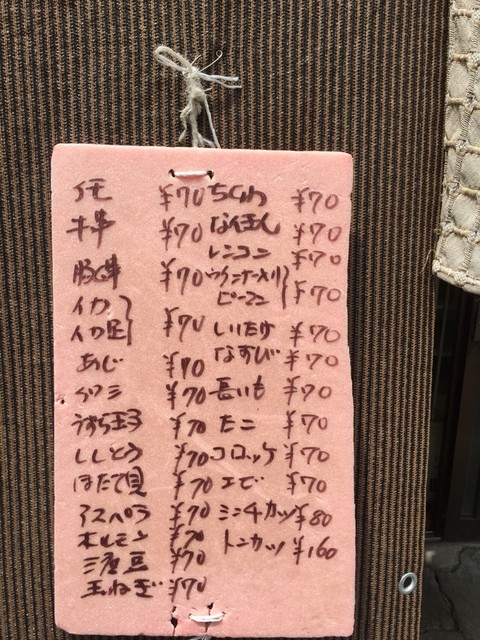 イモ ¥70
牛串 ¥70
豚串 ¥70
イカ
イカ足 ¥70
あじ ¥70
ｲワシ ¥70
うずら玉子 ¥70
ししとう ¥70
ほたて貝 ¥70
アスパラ ¥70
ホルモン ¥70
三度豆 ¥70
玉ねぎ ¥70
ちくわ ¥70
なんきん ¥70
レンコン ¥70
ウインナー入り
ピーマン ¥70
しいたけ ¥70
なすび ¥70
長いも ¥70
たこ ¥70
コロッケ ¥70
エビ ¥70
ミンチカツ ¥80
トンカツ ¥160